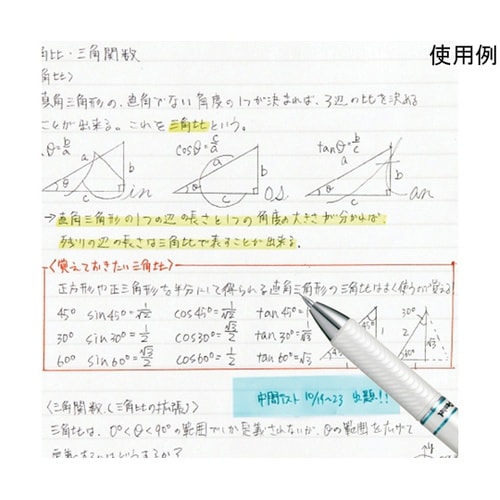 使用例
角比・三角関数
角比〉
直角三角形の、直角でない角度の1つが決まれば、3辺の比を決める
ことが出来る。これを三角比という。
θ=b/a
cosθ=c/a
tanθ=b/c
a
b
c
θ
in
a
b
c
θ
os
a
b
c
θ
an
→直角三角形の1つの辺の長さと1つの角度の大きさが分かれば、
残りの辺の長さは三角比で表すことが出来る。
〈覚えておきたい三角比〉
正方形や正三角形を半分にして得られる直角三角形の三角比はよく使うので覚える!
45° sin45°=1/√2 cos45°=1/√2 tan45°=1
30° sin30°=1/2 cos30°=√3/2 tan30°=1/√3
60° sin60°=√3/2 cos60°=1/2 tan60°=√3
45°
1
30°
2
√3
60°
中間テスト 10/19〜23 出題!!
〈三角関数(三角比の拡張)〉
三角比は、0°<θ<90°の範囲でしか定義されないが、θの範囲を広げて
定義するにはどうするか?